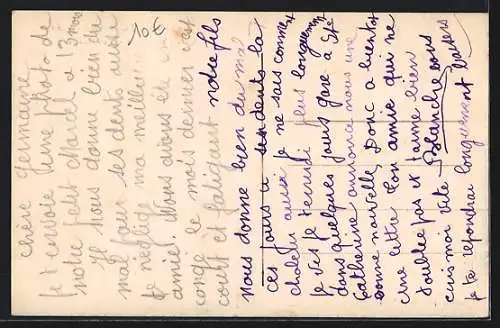 10€
chère Germaine
je t'envoie une photo de
notre petit Marcel a 13 mois
Il nous donne bien du
mal pour ses dents aussi
je néglige ma meilleure
amie. Nous avons eu un
congé le mois dernier c'est
court et fatigant notre fils
nous donne bien du mal
ces jours ci ses dents la
chaleur aussi je ne sais comment
je vis je t'écrirai plus longuement
dans quelques jours
Catherine annonce nous une
bonne nouvelle, Donc a bientot
une lettre Ton amie qui ne
t'oublie pas et t'aime bien
Blanche
ecris moi vite
je te répondrai longuement baisers